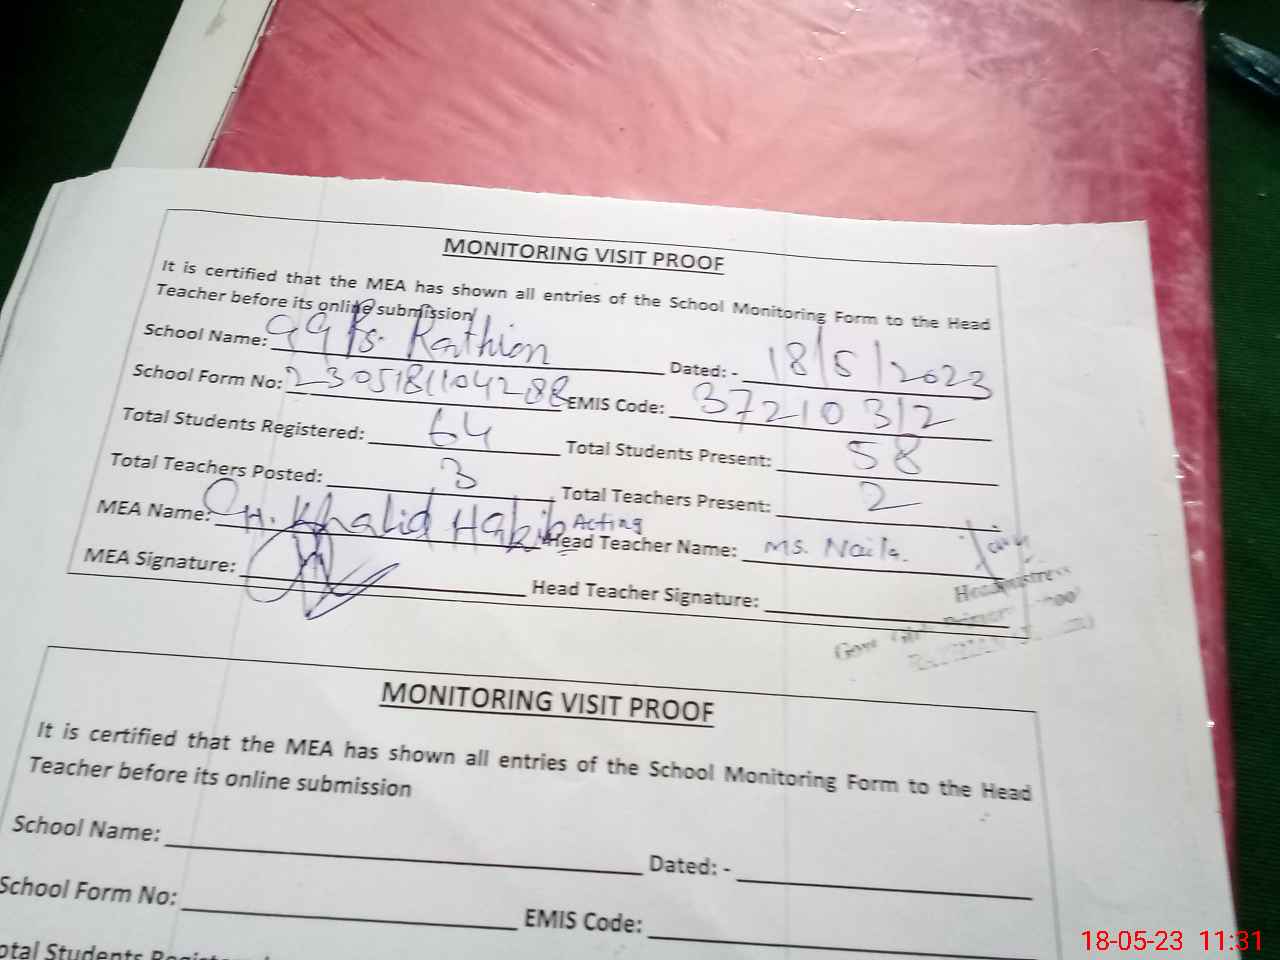 MONITORING VISIT PROOF
It is certified that the MEA has shown all entries of the School Monitoring Form to the Head
Teacher before its online submission
School Name: GGPs. Rathion Dated: - 18/5/2023
School Form No: 230518104288 EMIS Code: 37210312
Total Students Registered: 64 Total Students Present: 58
Total Teachers Posted: 3 Total Teachers Present: 2
MEA Name: CH. Khalid Habib Acting Head Teacher Name: Ms. Naila.
MEA Signature: Head Teacher Signature:
Headmistress
MONITORING VISIT PROOF
It is certified that the MEA has shown all entries of the School Monitoring Form to the Head
Teacher before its online submission
School Name: Dated: -
School Form No: EMIS Code:
otal Students
18-05-23 11:31